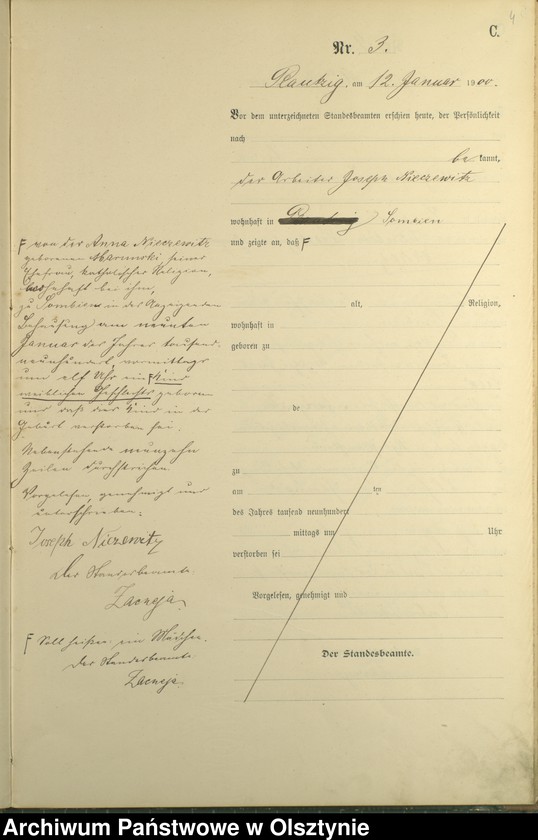 4
C.
Nr. 3.
Plautzig, am 12. Januar 1900.
Vor dem unterzeichneten Standesbeamten erschien heute, der Persönlichkeit
nach
be kannt,
der Arbeiter Joseph Nieczewitz
wohnhaft in Sombien
und zeigte an, daß F
alt, Religion,
wohnhaft in
geboren zu
de
zu
am ten
des Jahres tausend neunhundert
mittags um Uhr
verstorben sei
Vorgelesen, genehmigt und
Der Standesbeamte.
F von der Anna Nieczewitz
geborenen seiner
Ehefrau, katholischer Religion,
wohnhaft bei ihm,
zu Sombien in des Anzeigenden
Behausung am neunten
Januar des Jahres tausend
neunhundert, vormittags
um elf Uhr ein F Kind
weiblichen Geschlechts geboren
und daß das Kind in der
Geburt verstorben sei.
Nebenstehende neunzehn
Zeilen durchstrichen.
Vorgelesen, genehmigt und
unterschrieben:
Joseph Niezewitz
Der Standesbeamte
Zacheja
F Soll heißen ein Mädchen.
Der Standesbeamte
Zacheja
Archiwum Państwowe w Olsztynie